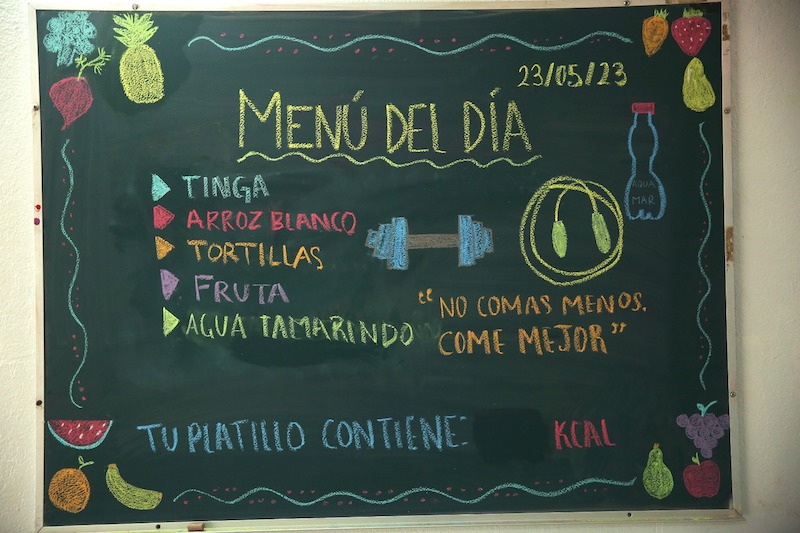 23/05/23
MENÚ DEL DÍA
TINGA
ARROZ BLANCO
TORTILLAS
FRUTA
AGUA TAMARINDO
AQUA
MAR
"NO COMAS MENOS.
COME MEJOR"
TU PLATILLO CONTIENE: KCAL